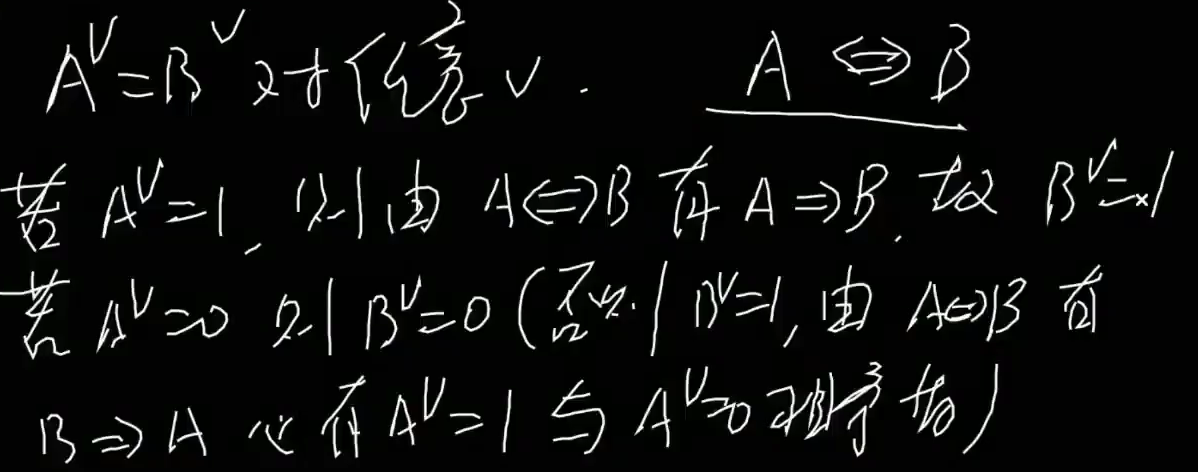 A^V=B^V 对任意 V. A⇔B
若 A^V=1, 则由 A⇔B 有 A⇒B. 故 B^V=1
若 A^V=0 则 B^V=0 (否则 B^V=1, 由 A⇔B 有
B⇒A 必有 A^V=1 与 A^V=0 相矛盾)